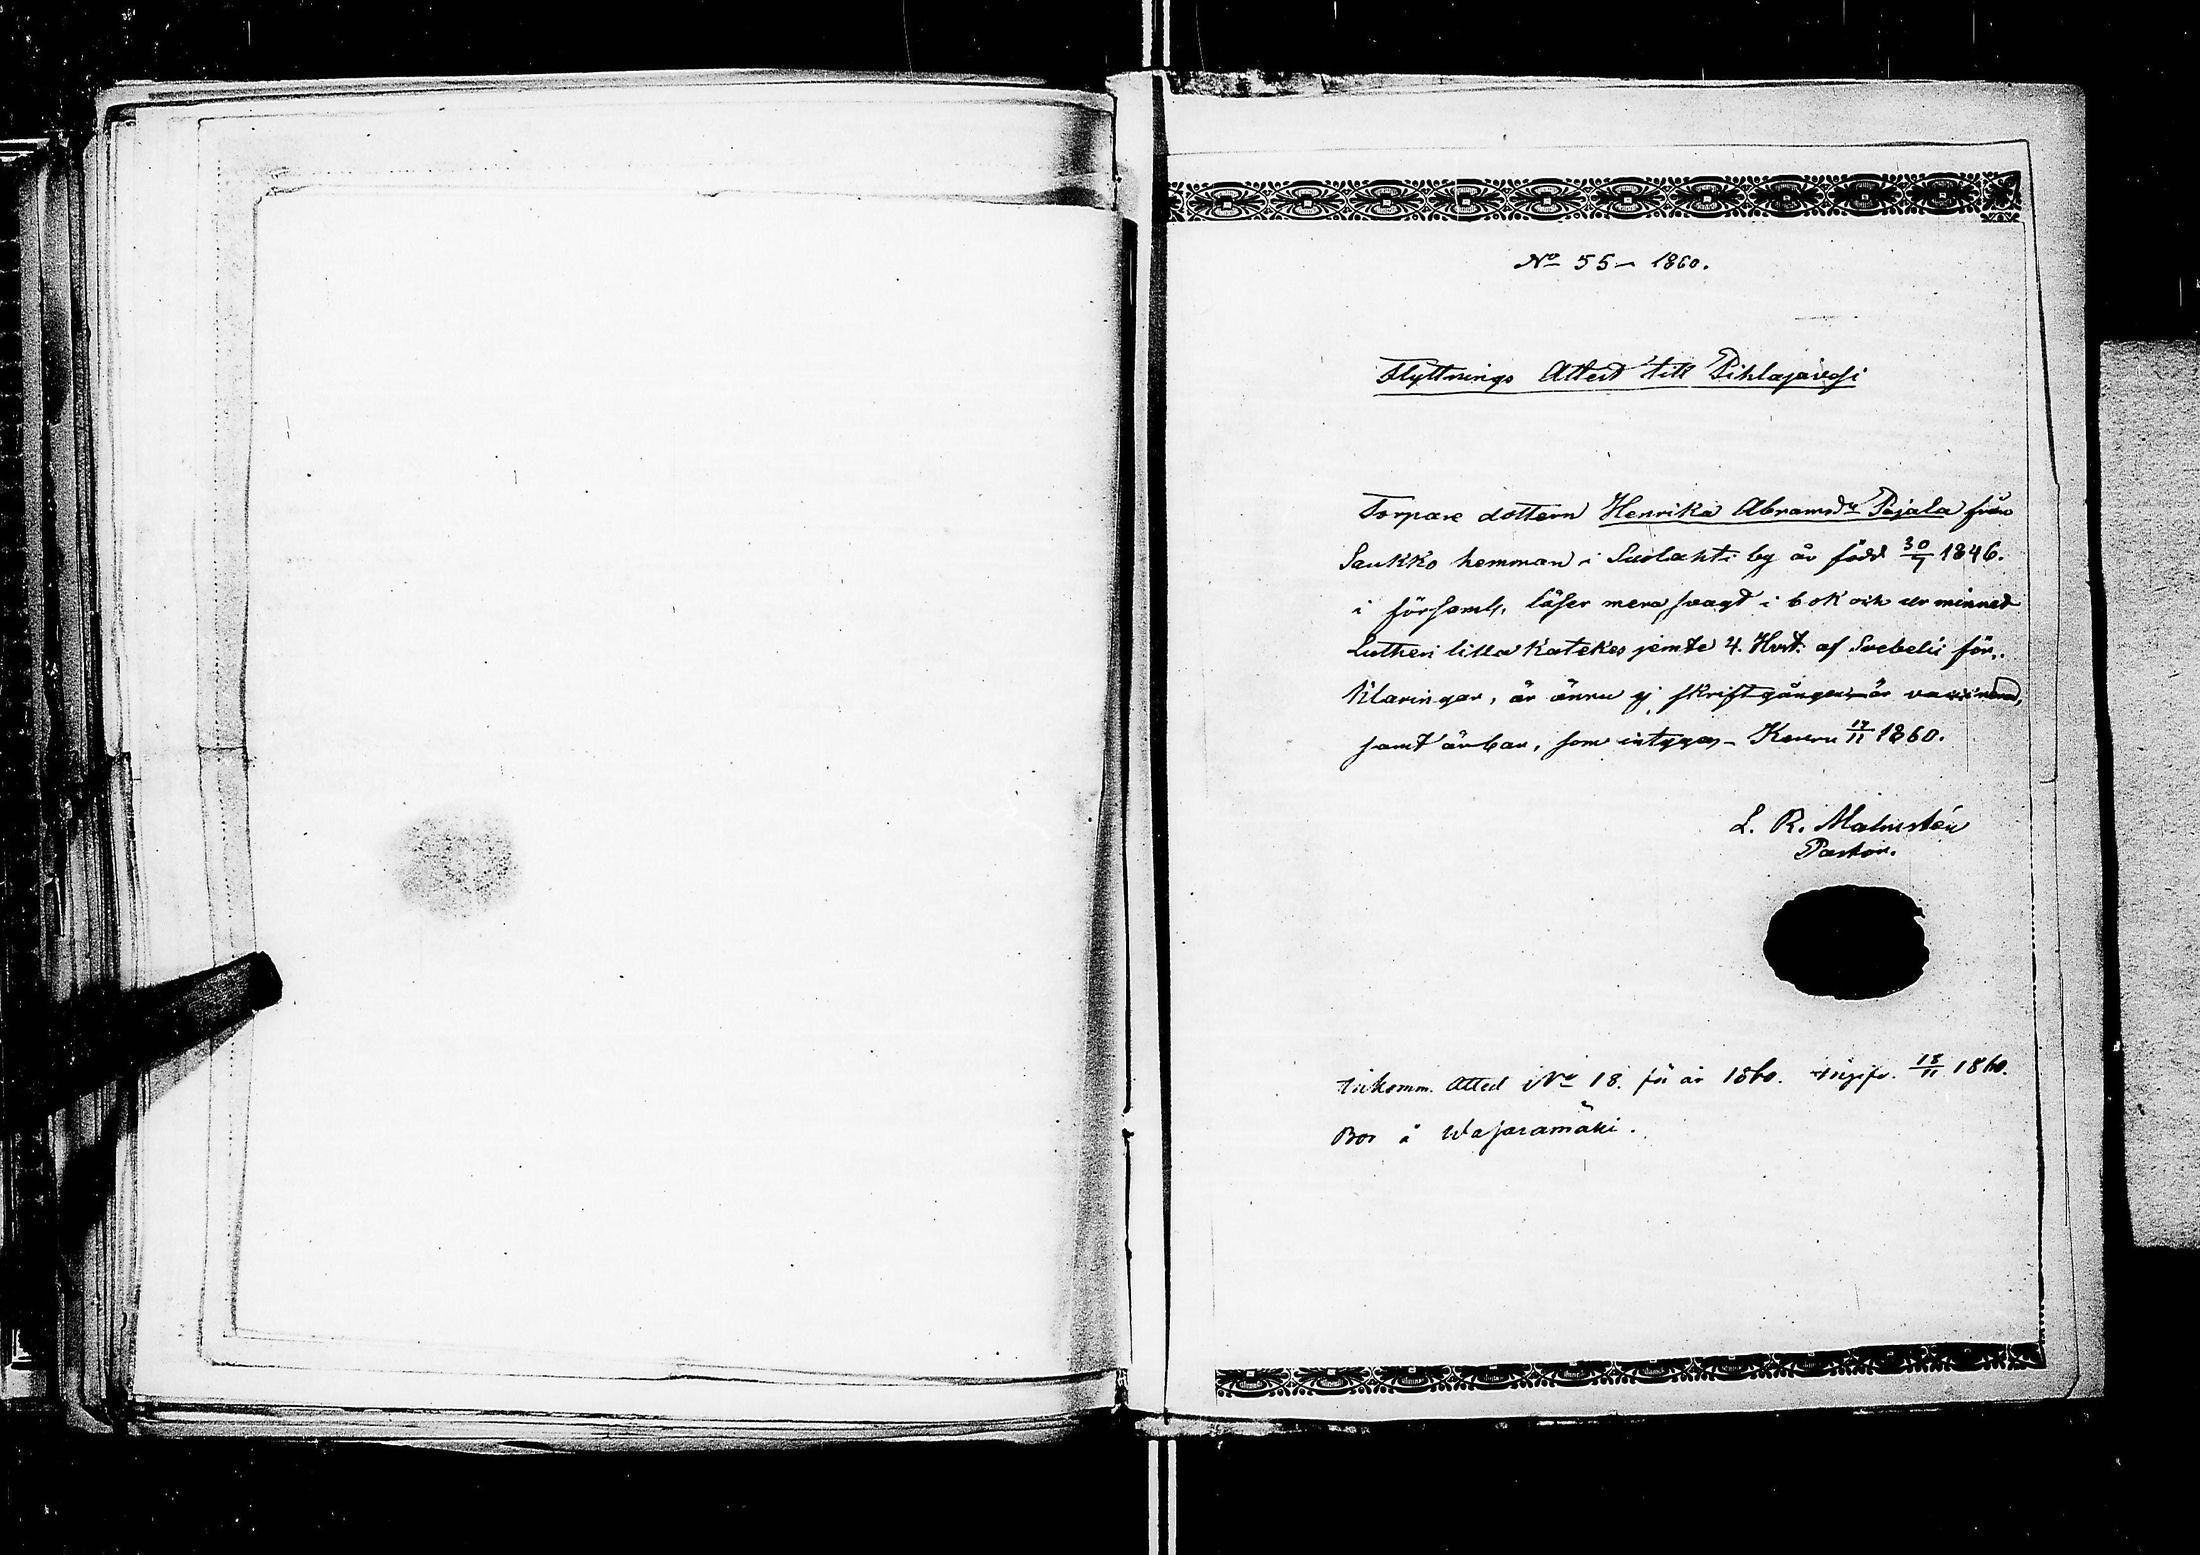 No 55 – 1860.
Flyttnings Attest till Pihlajavesi
Torpare dottern Henrika Abramsdr Pajala från
Saukko hemman i Suolahti by är född 30/7 1846.
i församl. läser mera svagt i bok och ur minnet
Lutheri lilla katekes jemte 4. Hvst. af Svebelii för-
klaringar, är ännu ej skriftgången, är vaccinerad,
samt ärbar, som intygas – Keuru 17/11 1860.
L. R. Malmstén
Pastor.
Inkomm. Attest No 18. för år 1860. 18/11 1860.
Bor å Wasaramäki.